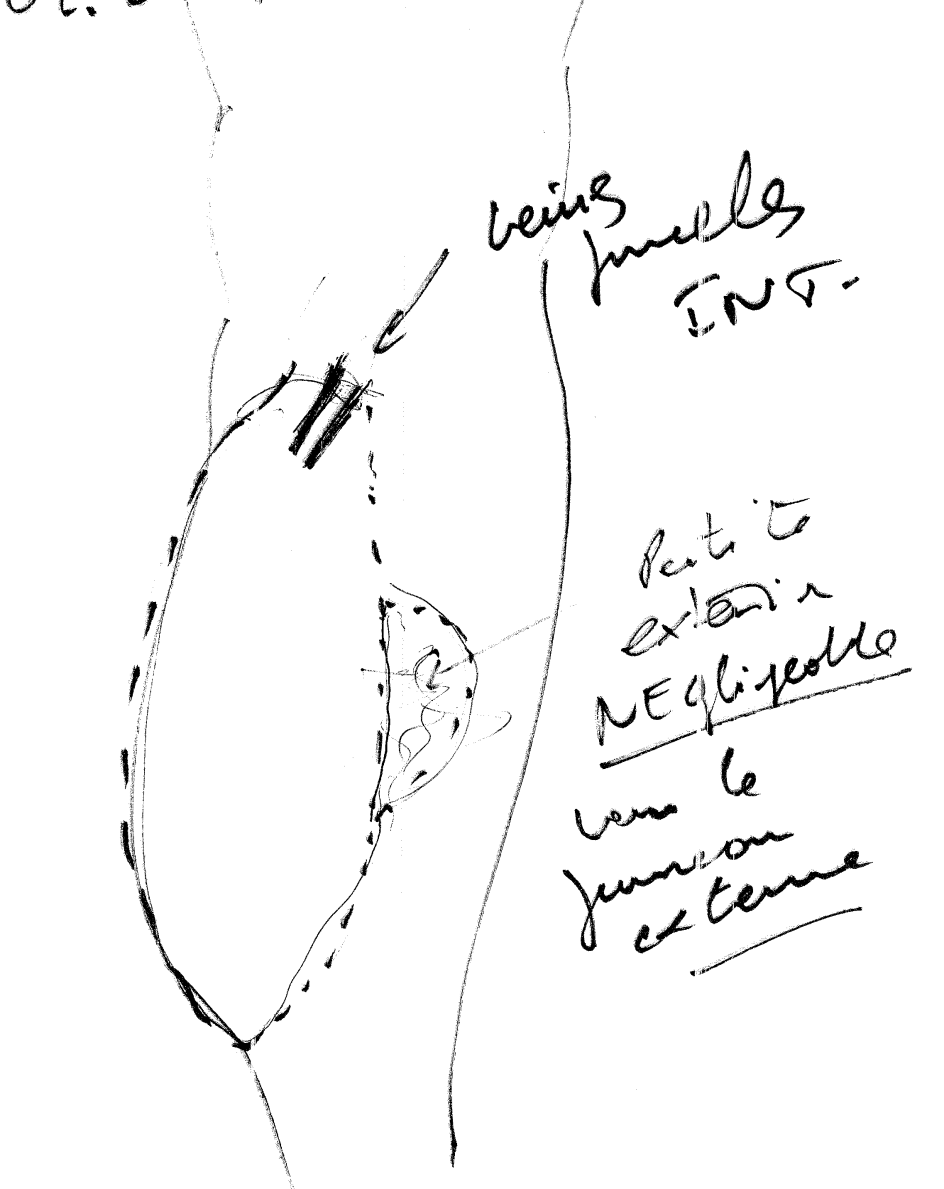 veines
jumelles
INT.
Petite
extension
NEgligeable
vers le
jumeau
externe